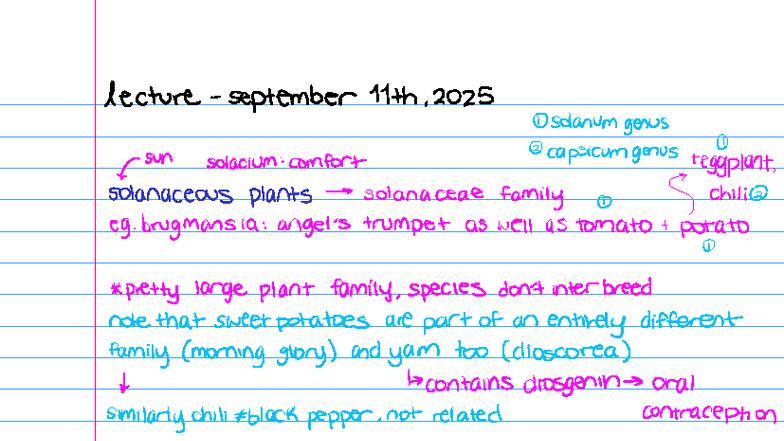 lecture - september 11th, 2025
① solanum genus
② capsicum genus
sun solacium: comfort
① + eggplant,
solanaceous plants → solanaceae family ① chili ②
eg. brugmansia: angel's trumpet as well as tomato + potato
①
*pretty large plant family, species don't interbreed
note that sweet potatoes are part of an entirely different
family (morning glory) and yam too (dioscorea)
↓ ↳ contains diosgenin → oral
contraception
similarly chili ≠ black pepper, not related